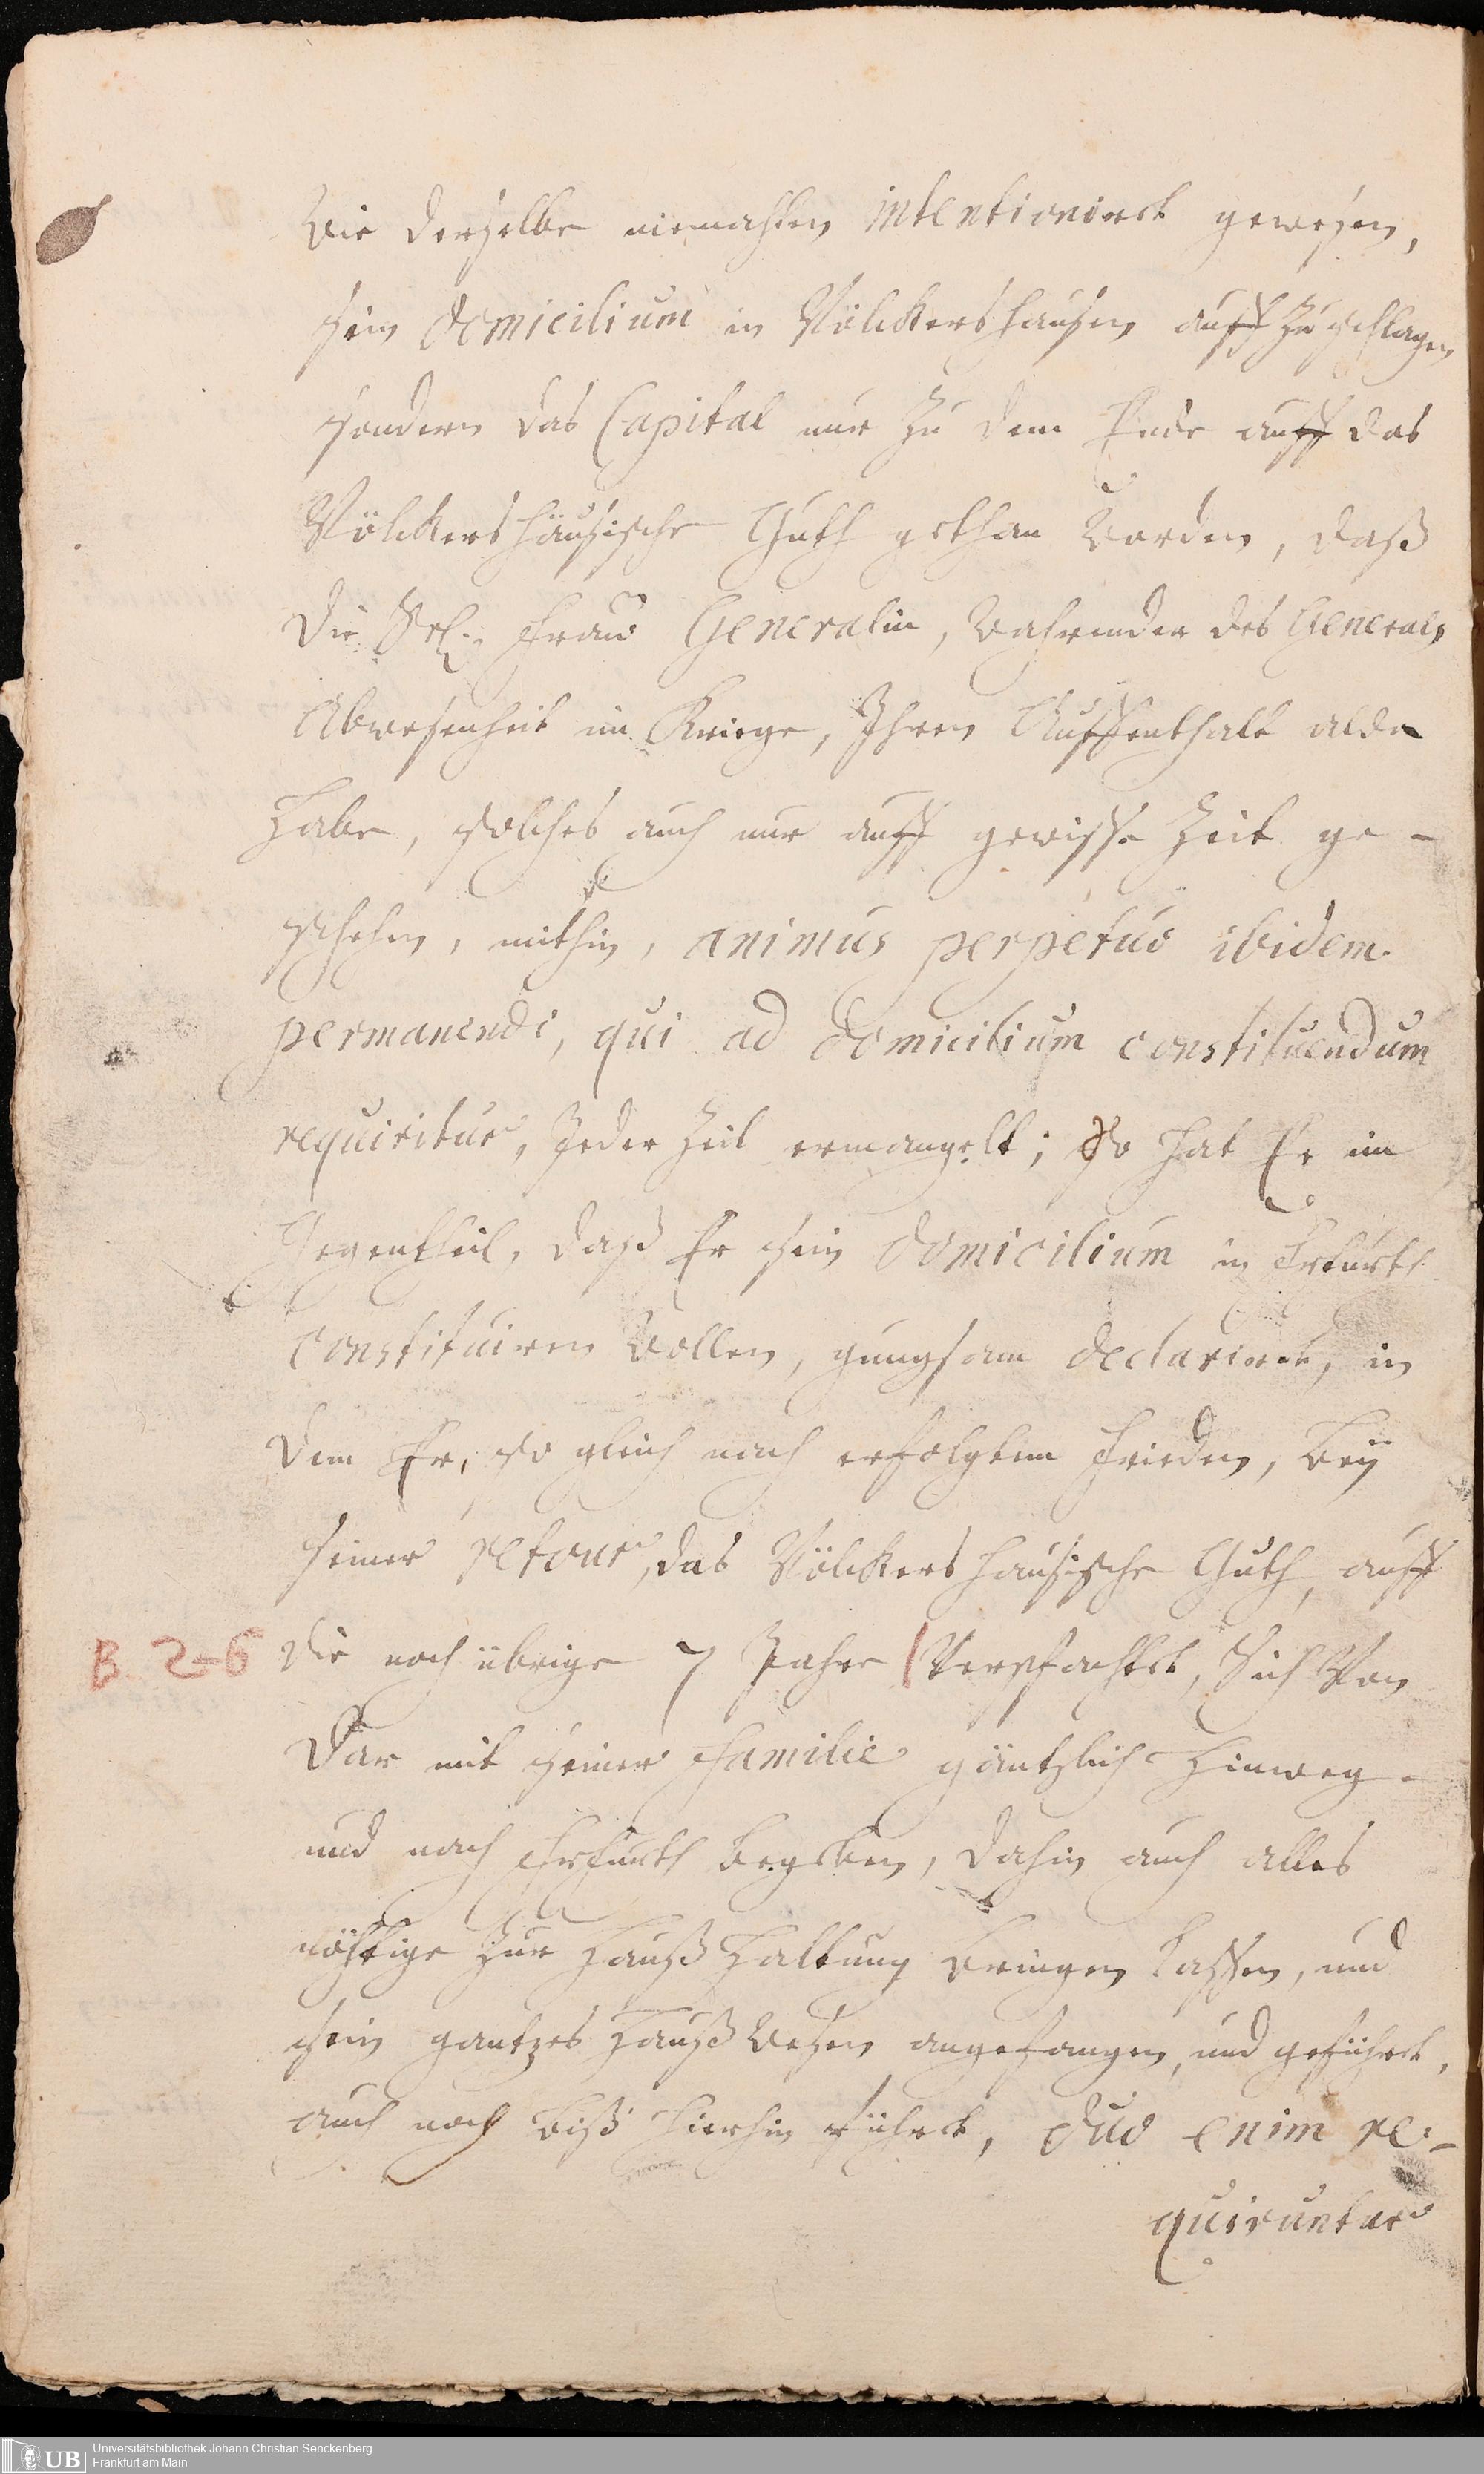 Wie derselbe niemahlen intentioniret gewesen,
sein domicilium in Völckershausen auff zu schlagen
sondern das Capital nur zu dem Ende auff das
Völckershäusische Guth gethan worden, daß
die Seel. Frau Generalin, wehrender des Generals
Abwesenheit im Kriege, Ihren Auffenthalt alda
habe, solches auch nur auff gewisse Zeit ge-
schehen, mithin, animus perpetuo ibidem
permanendi, qui ad domicilium constituendum
requiritur, Jeder Zeit ermangelt; So hat Er im
Gegentheil, daß Er sein domicilium in Erfurth
constituiren wollen, gnungsam declariret, in
dem Er, so gleich nach erfolgtem Frieden, bey
seiner retour, das Völckershausische Guth, auff
B. 2-6 die noch übrige 7 Jahre Verpfachtet, Sich Von
Dar mit seiner Familie gäntzlich hinweg-
und nach Erfurth begeben, dahin auch alles
nöthige zur Hauß Haltung bringen lassen, und
sein gantzes Hauß Wesen angefangen, und geführet,
auch noch biß hierhin führet, duo enim re-
quiruntur
UB Universitätsbibliothek Johann Christian Senckenberg
Frankfurt am Main